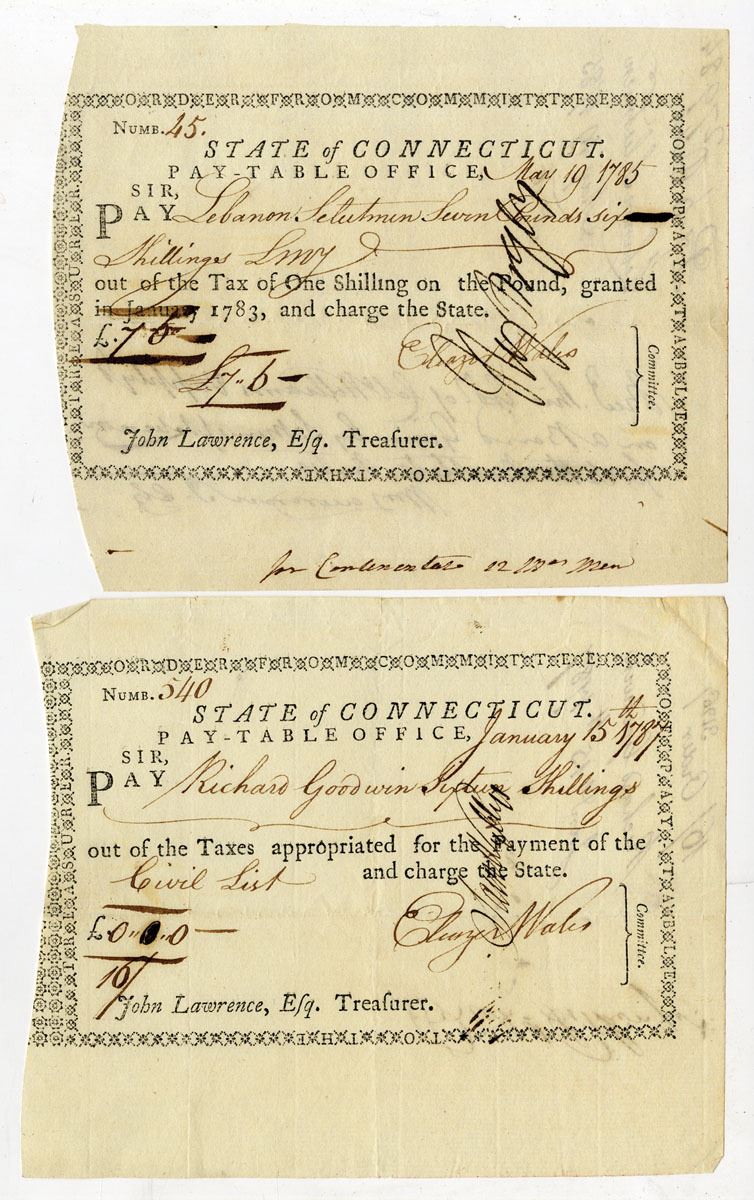 ORDER FROM COMMITTEE
OF PAY-TABLE
TO THE
TREASURER
NUMB. 45.
STATE of CONNECTICUT.
PAY-TABLE OFFICE, May 19 1785
SIR,
PAY Lebanon Selectmen Seven Pounds six
Shillings
out of the Tax of One Shilling on the Pound, granted
in January 1783, and charge the State.
£.7 6
£7..6
Eleazer Wales
Committee.
John Lawrence, Esq. Treasurer.
for Continental
ORDER FROM COMMITTEE
OF PAY-TABLE
TO THE
TREASURER
NUMB. 540
STATE of CONNECTICUT.
PAY-TABLE OFFICE, January 15th 1787
SIR,
PAY Richard Goodwin Sixteen Shillings
out of the Taxes appropriated for the Payment of the
Civil List and charge the State.
£.0..0..0
16/
Eleazer Wales
Committee.
John Lawrence, Esq. Treasurer.